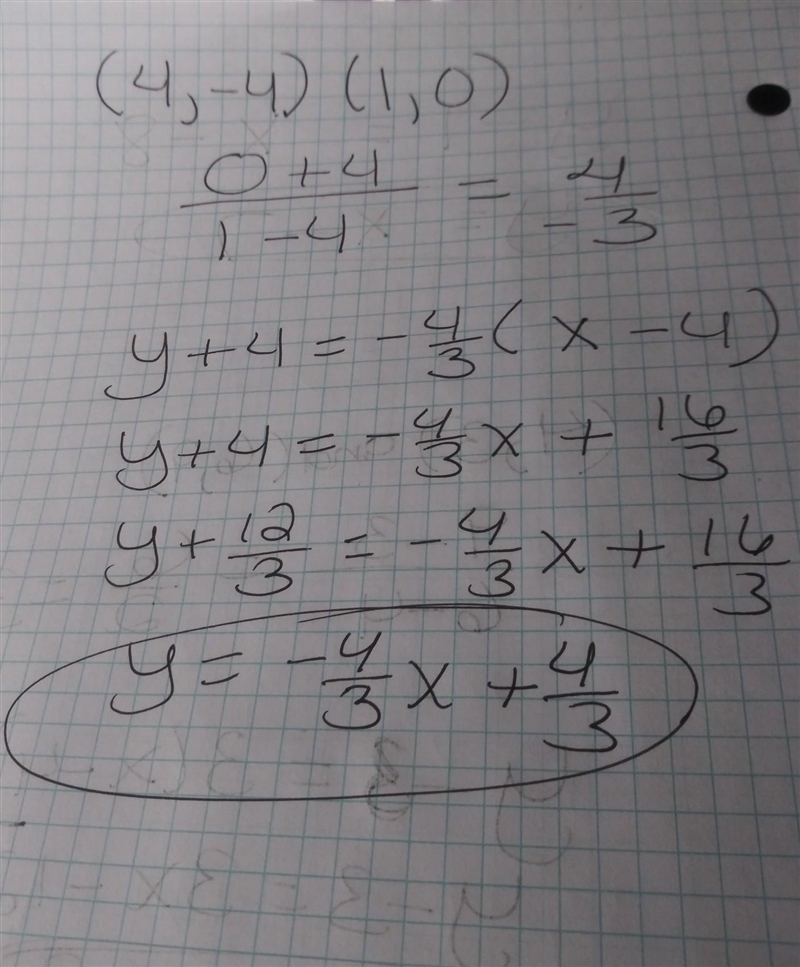 (4,-4) (1,0)
0+4/1-4 = 4/-3
y+4 = -4/3(x-4)
y+4 = -4/3x + 16/3
y+12/3 = -4/3x + 16/3
y = -4/3x + 4/3